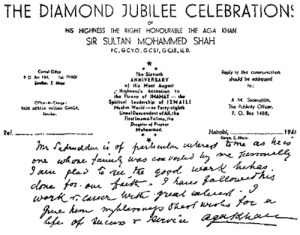 THE DIAMOND JUBILEE CELEBRATIONS
OF
HIS HIGHNESS THE RIGHT HONOURABLE THE AGA KHAN
SIR SULTAN MOHAMMED SHAH
P.C., G.C.V.O., G.C.S.I., G.C.I.E., LL.D.
The Sixtieth
ANNIVERSARY
of His Most August
Highness's Accession to
the Throne of IMAMAT - the
Spiritual Leadership of ISMAILI
Muslim World - as Forty-eighth
Lineal Descendant of Ali,
the First Imam
Reply to the communication
should be addressed to
A. M. Sadruddin,
The Publicity Officer,
P.O. Box 1498,
Ref.
Nairobi, 194
Mr Sadruddin is of particular interest to me as he is
one whose family was converted by me personally
I am glad to see the good work he has
done for our faith. I have followed his
work & career with great interest. I
give him my blessings & best wishes for a
life of success & service Aga Khan